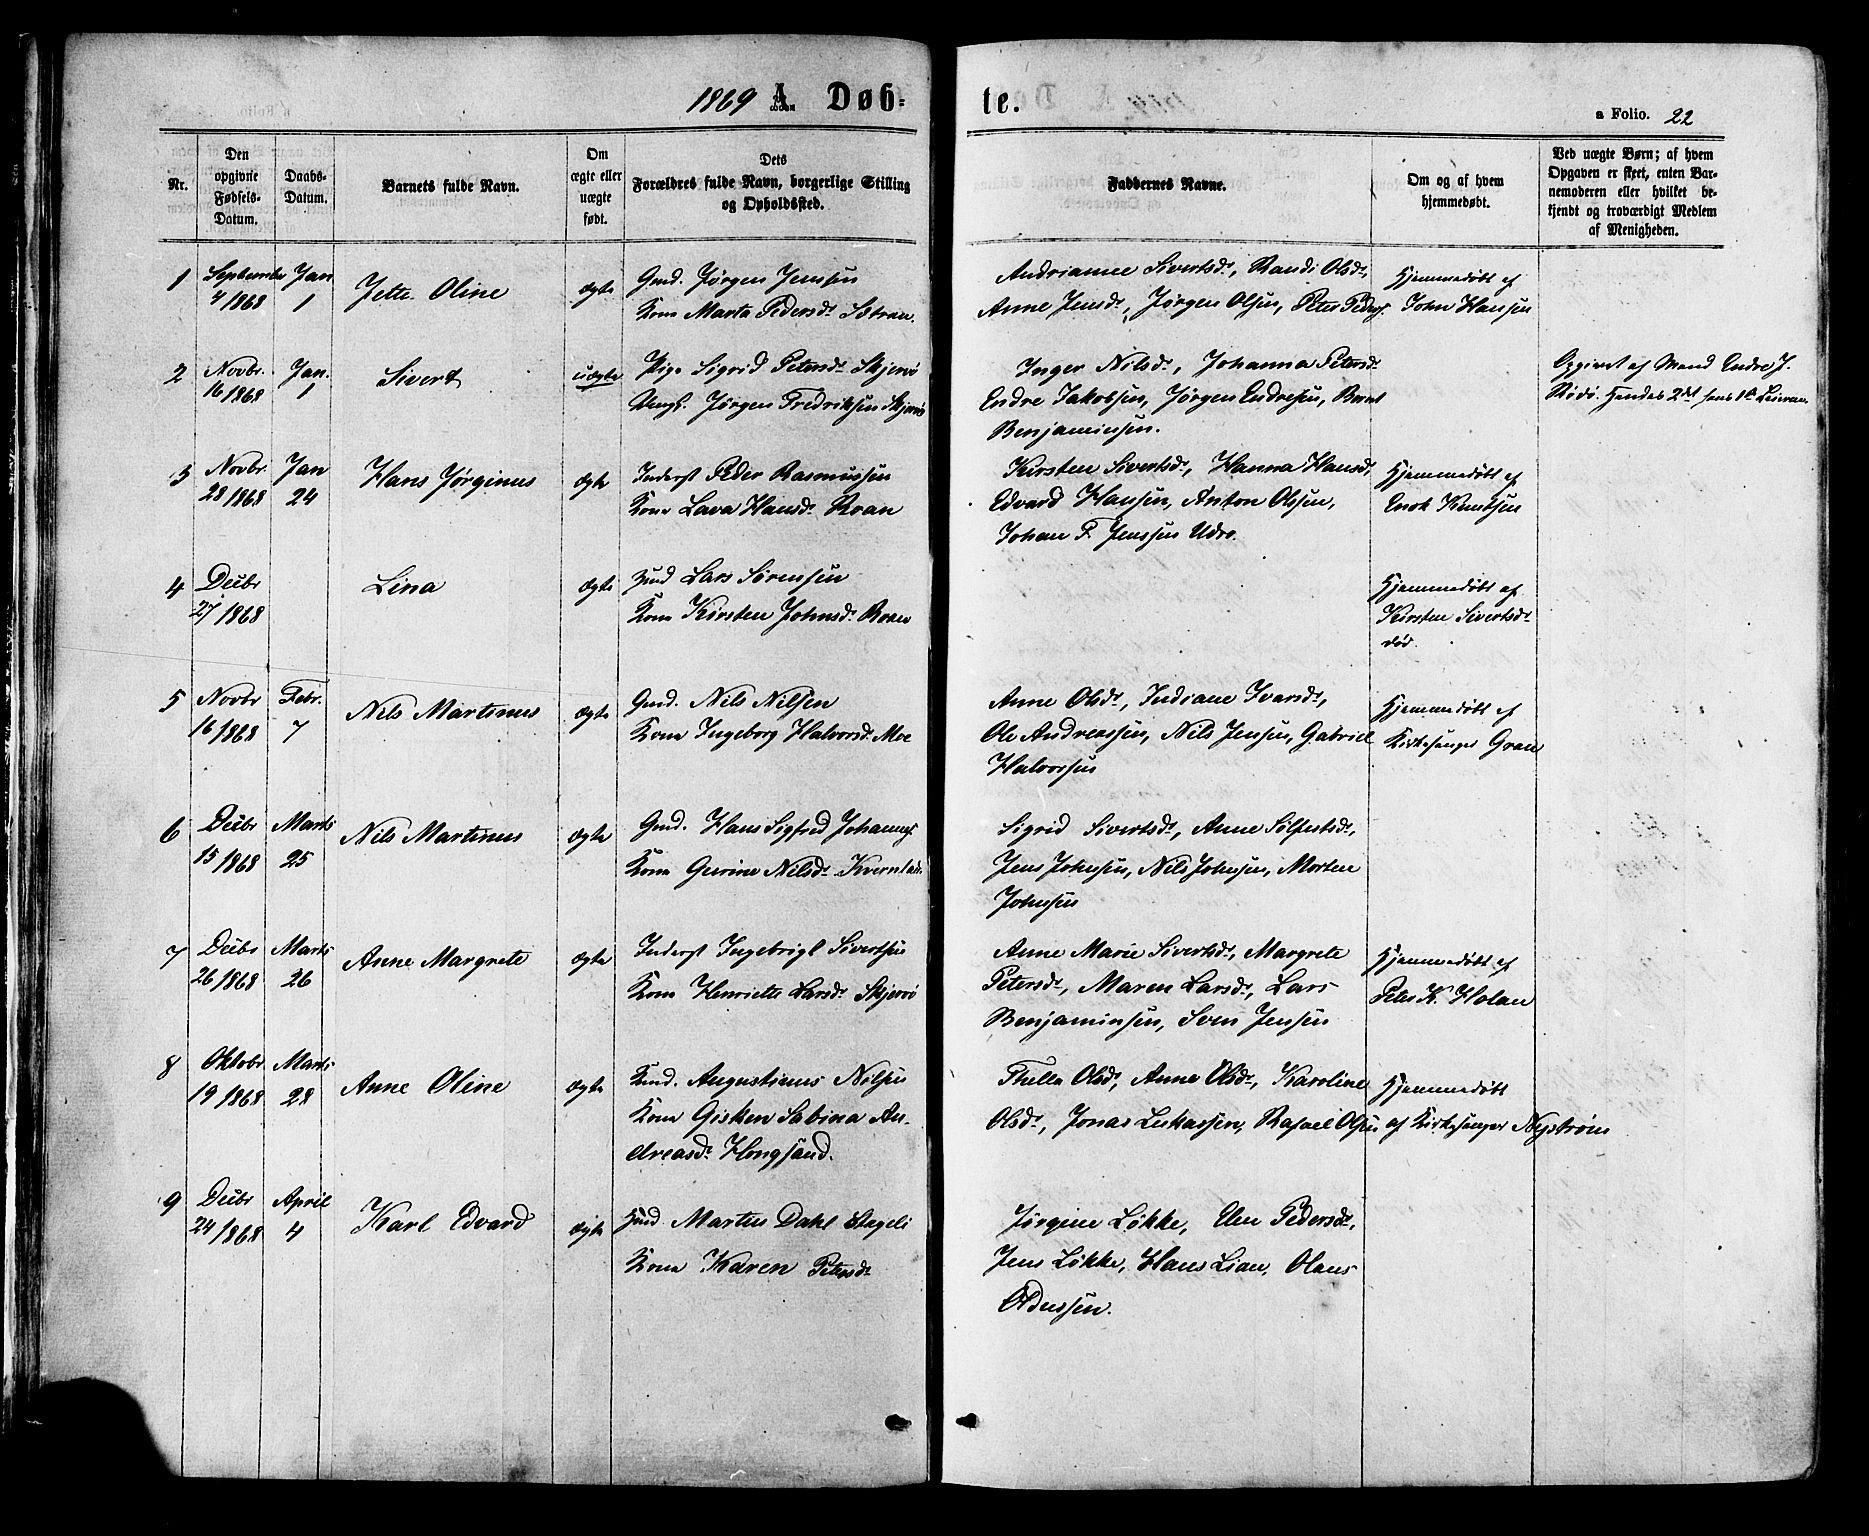 1869 A. Døb-
te.
a Folio. 22
Nr.
Den
opgivne
Fødsels-
Datum.
Daabs-
Datum.
Barnets fulde Navn.
Om
ægte eller
uægte
født.
Dets
Forældres fulde Navn, borgerlige Stilling
og Opholdssted.
Faddernes Navne.
Om og af hvem
hjemmedøbt.
Ved uægte Børn; af hvem
Opgaven er skeet, enten Bar-
nemoderen eller hvilket be-
kjendt og troværdigt Medlem
af Menigheden.
1
September
4/1868
Jan
1
Jette Oline
ægte
Gmd. Jørgen Jenssen
Kone Marta Pedersdr
Andrianne Sivertsdr, Randi Olsdr,
Anne Jensdr, Jørgen Olsen, Peter Peders.
Hjemmedøbt af
John Hansen
2
Novbr.
16/1868
Jan.
1
Sivert
uægte
Pige Sigrid Petersdr Skjervø
Ungk. Jørgen Fredriksen Skjervø
Inger Nilsdr, Johanna Petersdr
Endre Jakobsen, Jørgen Endresen, Bernt
Benjaminsen.
Opgivet af Mand Endre J.
Hendes 2det hans 1ste
3
Novbr.
28/1868
Jan
24
Hans Jørginus
ægte
Inderst Peder Rasmussen
Kone Lava Hansdr Roan
Kirsten Sivertsdr, Hanna Hansdr,
Edvard Hansen, Anton Olssen,
Johan P. Jenssen Udro.
Hjemmedøbt af
Enok Knutsen
4
Decbr
27/1868
Lina
ægte
Lars Sørensen
Kone Kirsten Johnsdr Roan
Hjemmedøbt af
Kirsten Sivertsdr
død.
5
Novbr
16/1868
Febr.
7
Nils Martinus
ægte
Gmd. Nils Nilsen
Kone Ingeborg Halvorsdr Moe
Anne Olsdr, Indiane Ivarsdr,
Ole Andreassen, Nils Jensen, Gabriel
Halvorsen
Hjemmedøbt af
Kirkesanger Gran
6
Decbr
15/1868
Marts
25
Nils Martinus
ægte
Gmd. Hans Sigfred Johannes
Kone Gurine Nilsdr
Sigrid Sivertsdr, Anne
Jens Johnsen, Nils Johnsen, Morten
Johnsen
7
Decbr
26/1868
Marts
26
Anne Margrete
ægte
Inderst Ingebrigt Sivertsen
Kone Henriette Larsdr Skjervø
Anne Marie Sivertsdr, Margrete
Petersdr, Maren Larsdr, Lars
Benjaminsen, Sven Jensen
Hjemmedøbt af
Peter K. Holan
8
Oktobr
19/1868
Marts
28
Anne Oline
ægte
Augustinus Nilsen
Kone Gisken Sabina An-
dreasdr Hongsand.
Thilla Olsdr, Anne Olsdr, Karoline
Olsdr, Jonas Lukassen, Rafael Olsen
Hjemmedøbt
af Kirkesanger Nystrøm
9
Decbr
24/1868
April
4
Karl Edvard
ægte
Martin Dahl
Kone Karen Petersdr
Jørgine Løkke, Elen Pedersdr,
Jens Løkke, Hans Lian, Olaus